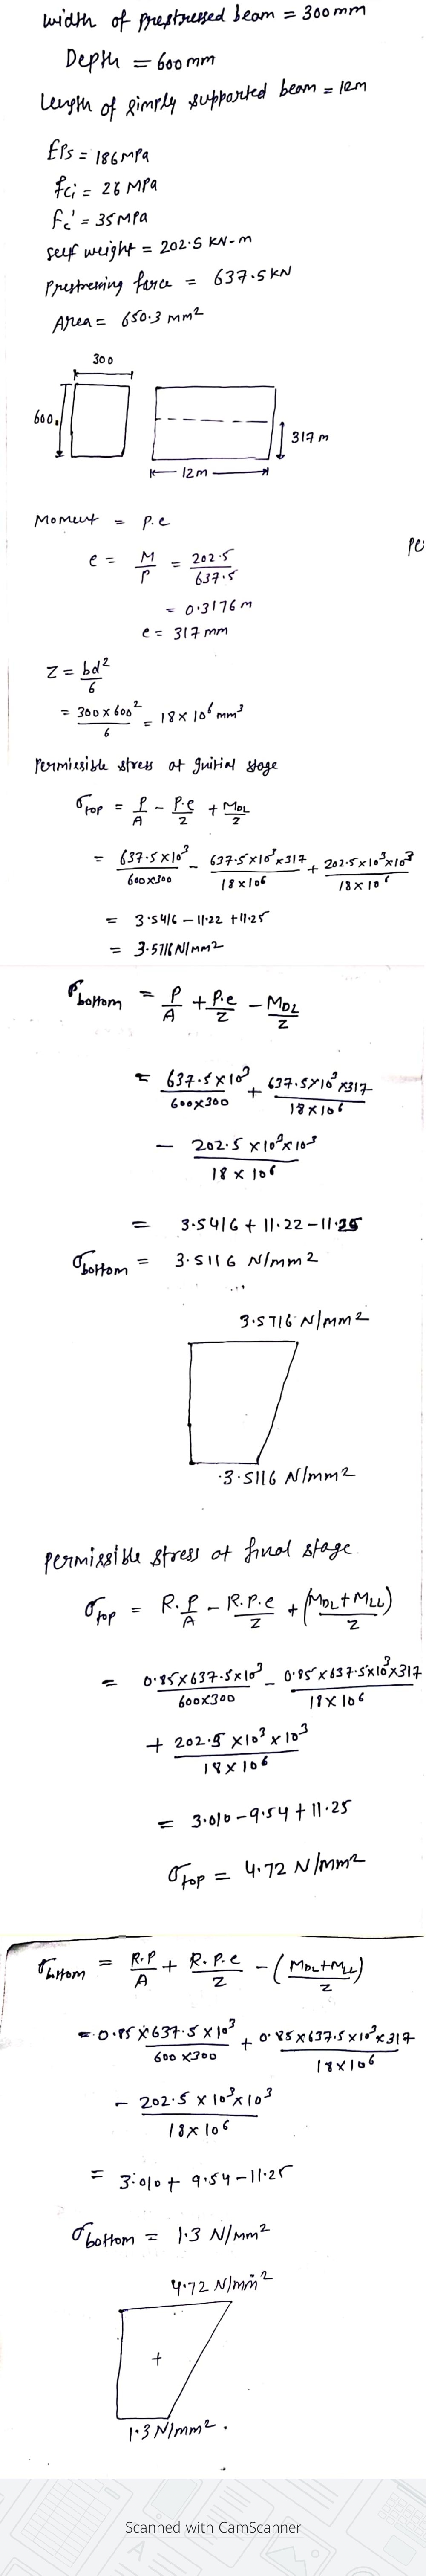 width of prestressed beam = 300mm
Depth = 600mm
Length of simply supported beam = 12m
EPs = 186MPa
fci = 28 MPa
Fc' = 35MPa
self weight = 202.5 KN-m
Prestressing force = 637.5KN
Area = 650.3 mm²
300
600
317 m
12m
Moment = P.e
e = M/P = 202.5/637.5
Pe
= 0.3176 m
e = 317 mm
Z = bd²/6
= 300×600²/6 = 18×10⁶ mm³
Permissible stress at initial stage
σtop = P/A - P.e/Z + MDL/Z
= 637.5×10³/600×300 - 637.5×10³×317/18×106 + 202.5×10³×10³/18×10⁶
= 3.5416 - 11.22 + 11.25
= 3.5716N/mm2
σbottom = P/A + P.e/Z - MDL/Z
= 637.5×10³/600×300 + 637.5×10³×317/18×10⁶
- 202.5×10³×10³/18×10⁶
= 3.5416 + 11.22 - 11.25
σbottom = 3.5116 N/mm2
3.5716 N/mm2
3.5116 N/mm2
permissible stress at final stage
σtop = R.P/A - R.P.e/Z + (MDL+MLL)/Z
= 0.85×637.5×10³/600×300 - 0.85×637.5×10³×317/18×106
+ 202.5×10³×10³/18×106
= 3.010 - 9.54 + 11.25
σtop = 4.72 N/mm2
σbottom = R.P/A + R.P.e/Z - (MDL+MLL)/Z
= 0.85×637.5×10³/600×300 + 0.85×637.5×10³×317/18×106
- 202.5×10³×10³/18×106
= 3.010 + 9.54 - 11.25
σbottom = 1.3 N/mm2
4.72 N/mm2
+
1.3 N/mm2.
Scanned with CamScanner